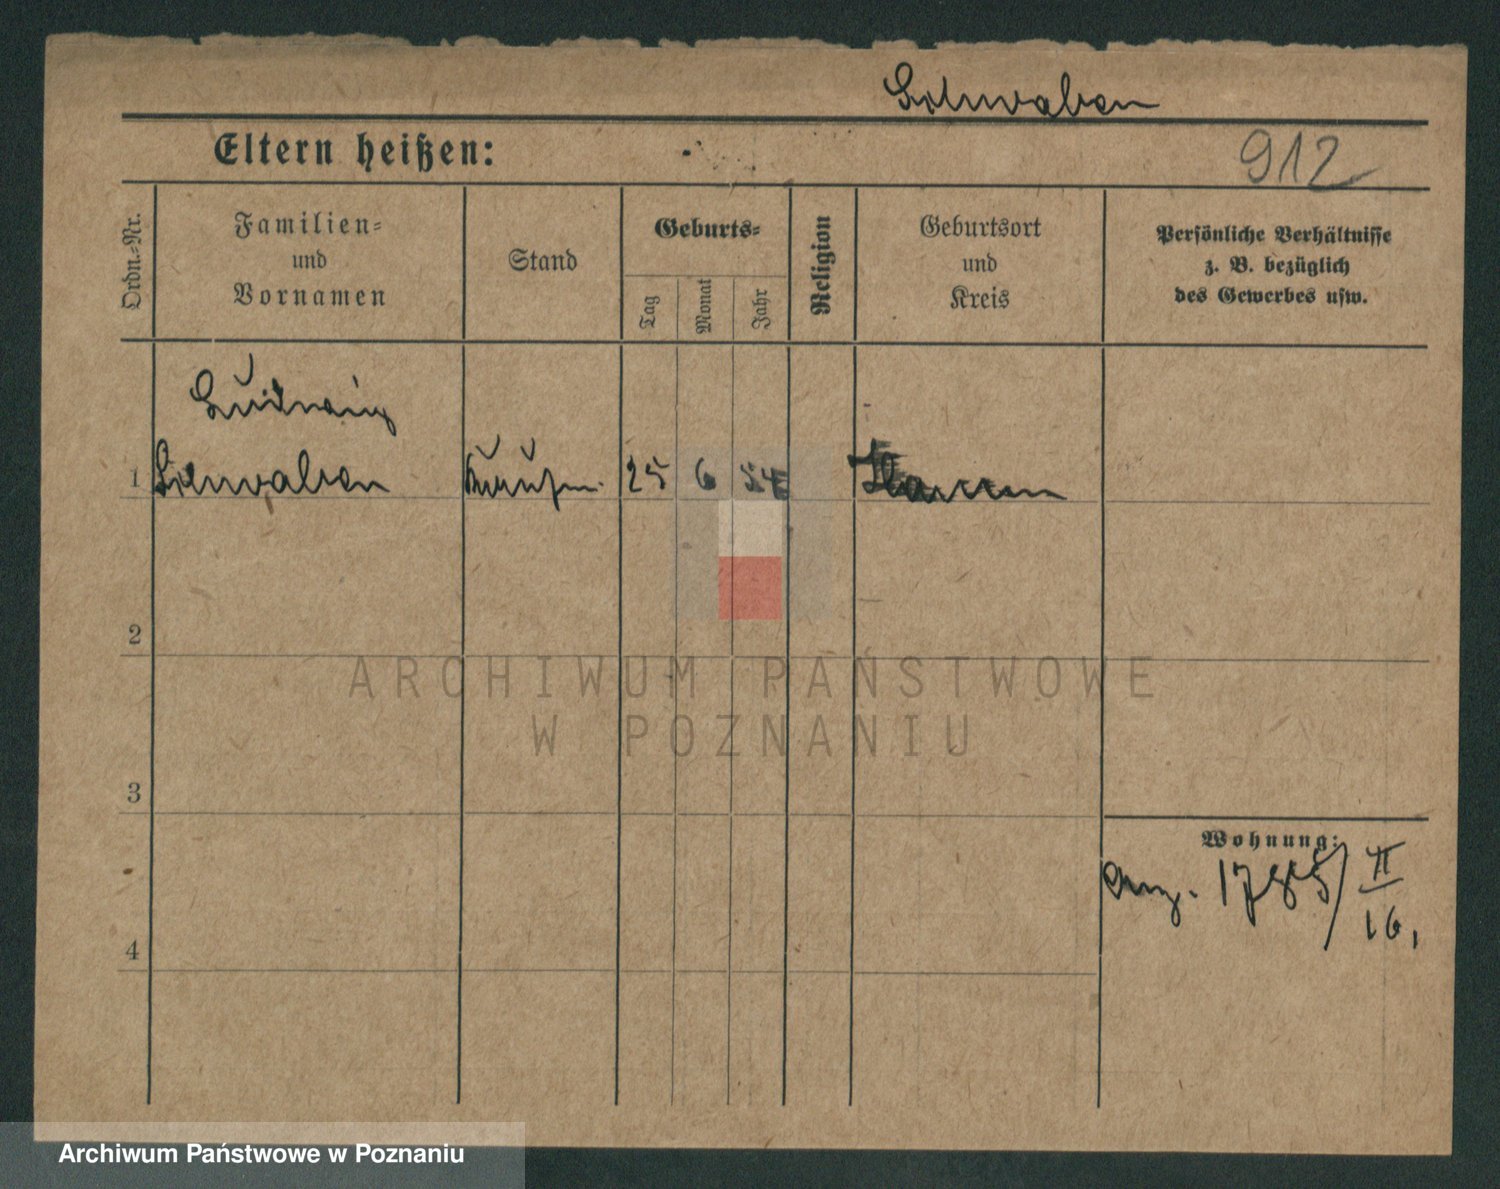 Schwaben
Eltern heißen:
912
Ordn.-Nr.
Familien-
und
Vornamen
Stand
Geburts-
Tag
Monat
Jahr
Religion
Geburtsort
und
Kreis
Persönliche Verhältnisse
z. B. bezüglich
des Gewerbes usw.
Ludwig
1 Schwaben 25 6 54
2
ARCHIWUM PAŃSTWOWE
W POZNANIU
3
Wohnung:
Anz. 1785/ II
16.
4
Archiwum Państwowe w Poznaniu